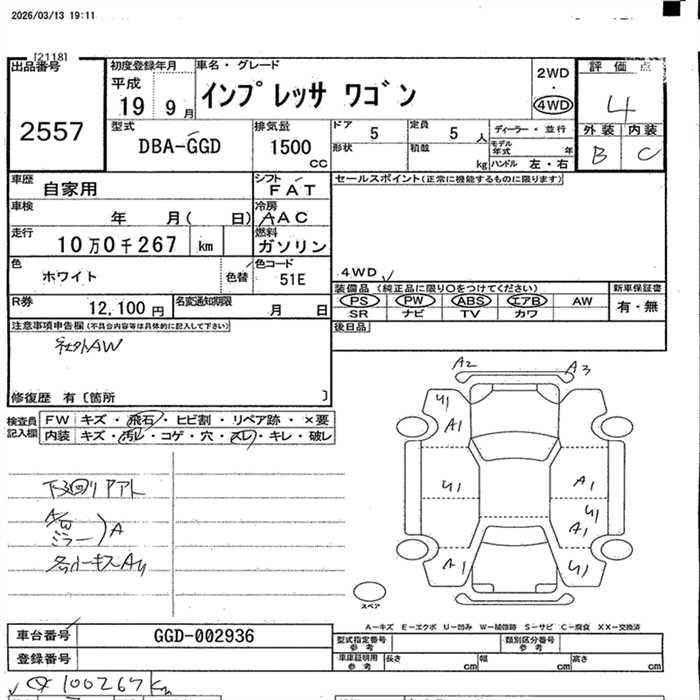 2026/03/13 19:11
[2118]
出品番号
2557
初度登録年月
平成
19 9月
車名・グレード
インプレッサ ワゴン
2WD
・
4WD
評価点
4
外装 内装
B C
型式
DBA-GGD
排気量
1500
cc
ドア 5
定員 5 人
ディーラー・並行
形状
積載 kg
モデル年式 年
ハンドル 左・右
車歴
自家用
シフト
FAT
セールスポイント(正常に機能するものに限ります)
4WD
車検
年 月( 日)
冷房
AAC
走行
10万0千267 km
燃料
ガソリン
色
ホワイト
色替
色コード
51E
装備品 (純正品に限り○をつけてください)
新車保証書
PS PW ABS エアB AW
SR ナビ TV カワ
有・無
R券
12,100円
名変通知期限
月 日
後日品
注意事項申告欄(不具合内容等は具体的に記入して下さい)
社外AW
修復歴 有〔箇所 〕
検査員記入欄
FW キズ・飛石・ヒビ割・リペア跡・×要
内装 キズ・汚レ・コゲ・穴・スレ・キレ・破レ
A/W
ミラー
A
A2 A3
U1
A1
U1
A1
U1
A1
A1
U1
スペア
A-キズ E-エクボ U-凹み W-補修跡 S-サビ C-腐食 XX-交換済
車台番号
GGD-002936
登録番号
型式指定番号
参考
類別区分番号
参考
車庫証明用
参考
長さ cm
幅 cm
高さ cm
100267 km